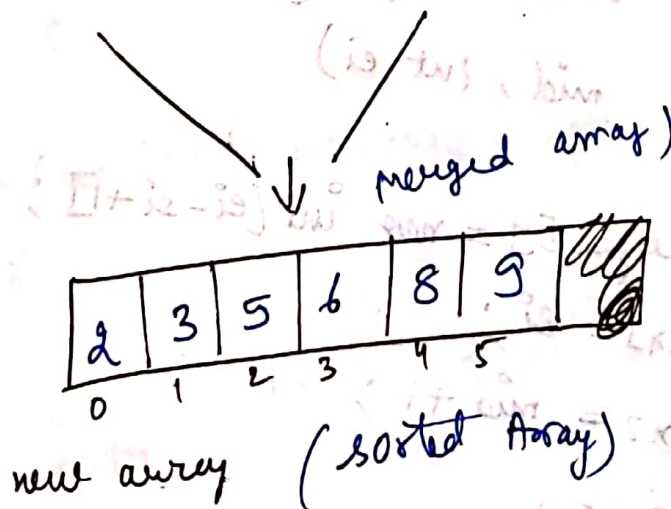 merged array)
2 3 5 6 8 9
0 1 2 3 4 5
new array (sorted Array)